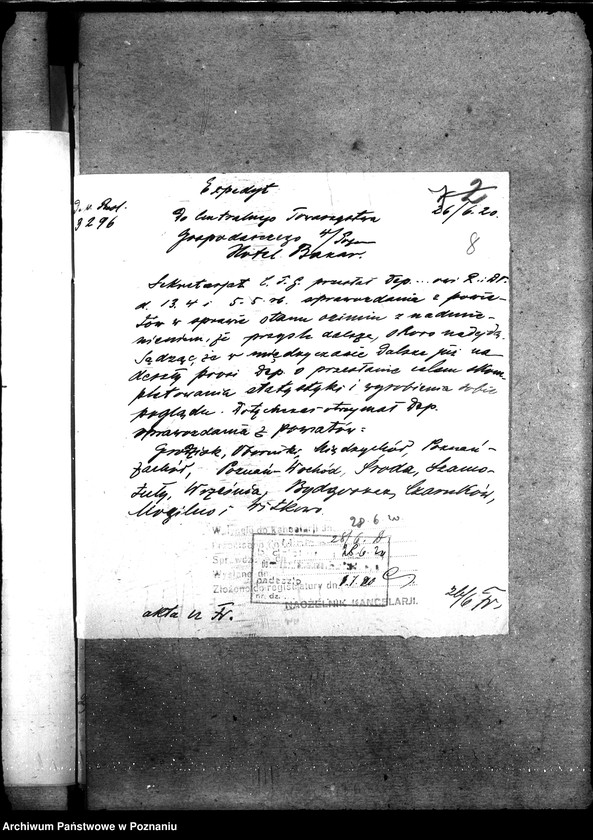 Expedyt
26/6.20.
3296
8
Do Centralnego Towarzystwa
Gospodarczego w/
Hotel Bazar.
Sekretarjat C.T.G. przesłał Dep.
d. 13.4 i 5.5 rb. sprawozdania z powia-
tów w sprawie stanu ozimin z nadmie-
nieniem, że przyśle dalsze, skoro nadejdą.
Sądząc, że w międzyczasie dalsze już na
deszły prosi Dep. o przesłanie celem skom
pletowania statystyki i wyrobienia sobie
poglądu. Dotychczas otrzymał Dep.
sprawozdania z powiatów:
Grodzisk, Oborniki, Międzychód, Poznań-
zachód, Poznań-Wschód, Środa, Szamo-
tuły, Września, Bydgoszcz, Czarnków,
Mogilno i Witkowo.
28 6
Wpłynęło do kancelarji dn.
28/6.
28.6.20
Wysłano dn.
Złożono do registratury dn.
nr. dz.
NACZELNIK KANCELARJI.
26/6
akta
Archiwum Państwowe w Poznaniu